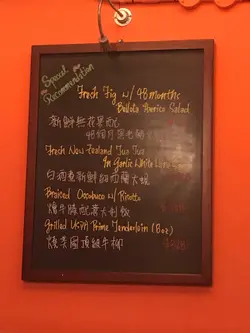 Special
Recommendation
Fresh Fig w/ 48 months
Bellota Iberico Salad
新鮮無花果配
48個月黑毛豬
Fresh New Zealand Tua Tua
In Garlic White Wine
白酒煮新鮮紐西蘭大蜆
Braised Ossobuco w/ Risotto
燴牛膝配意大利飯
Grilled USDA Prime Tenderloin (8oz)
燒美國頂級牛柳